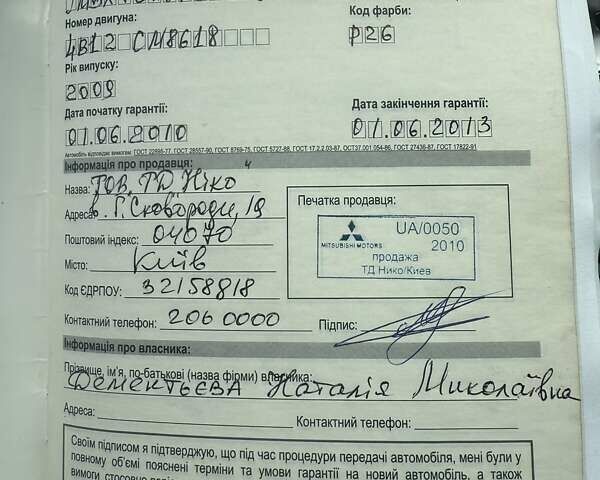 Номер двигуна:
Код фарби:
4B12 CM8618
P26
Рік випуску:
2009
Дата початку гарантії:
Дата закінчення гарантії:
01.06.2010
01.06.2013
Автомобіль відповідає вимогам: ГОСТ 22895-77, ГОСТ 28557-90, ГОСТ 8769-75, ГОСТ 5727-88, ГОСТ 17.2.2.03-87, ОСТ37.001.054-86, ГОСТ 27436-87, ГОСТ 17822-91
Інформація про продавця:
Назва: ТОВ. ТД Ніко
Адреса: в. Г.Сковороди, 19
Поштовий індекс: 04070
Місто: Київ
Код ЄДРПОУ: 32158818
Контактний телефон: 206 0000
Печатка продавця:
UA/0050
MITSUBISHI MOTORS
2010
продажа
ТД Нико/Киев
Підпис:
Інформація про власника:
Прізвище, ім'я, по-батькові (назва фірми) власника:
Дементьєва Наталія Миколаївна
Адреса:
Контактний телефон:
Своїм підписом я підтверджую, що під час процедури передачі автомобіля, мені були у
повному об'ємі пояснені терміни та умови гарантії на новий автомобіль, а також
вимоги стосовно